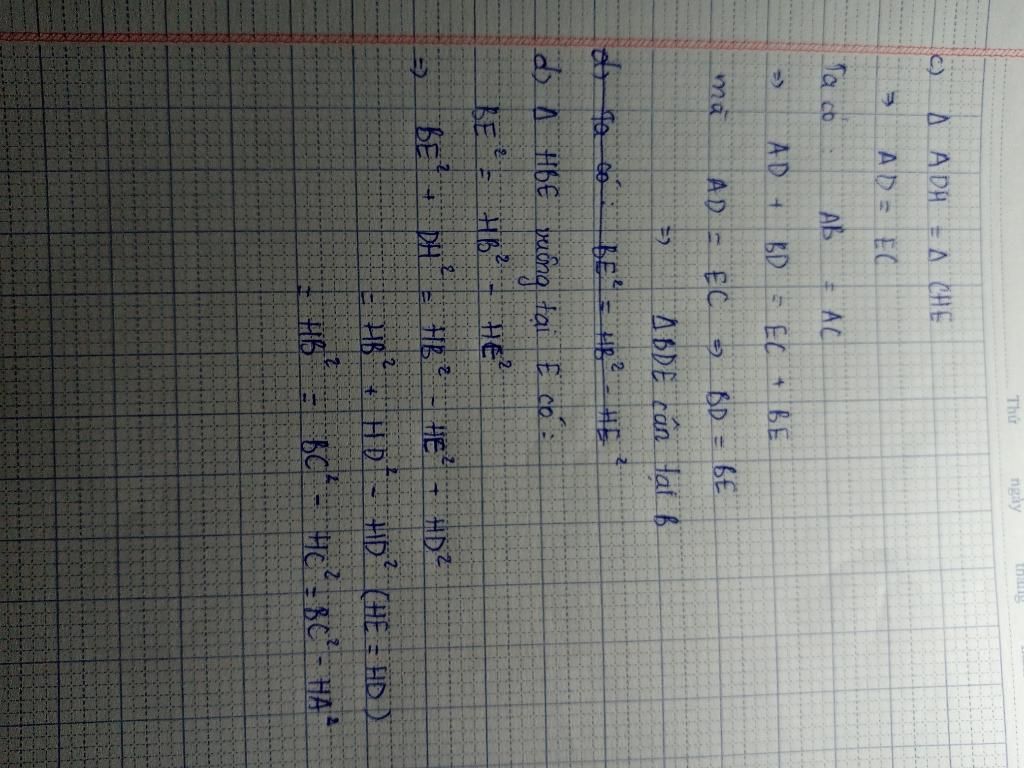 Thứ ngày tháng
c) Δ ADH = Δ CHE
⇒ AD = EC
Ta có : AB = AC
⇒ AD + BD = EC + BE
mà AD = EC ⇒ BD = BE
⇒ ΔBDE cân tại B
d) Ta có : BE² = HB² - HE²
d) Δ HBE vuông tại E có :
BE² = HB² - HE²
⇒ BE² + DH² = HB² - HE² + HD²
= HB² + HD² - HD² (HE = HD)
= HB² = BC² - HC² = BC² - HA²